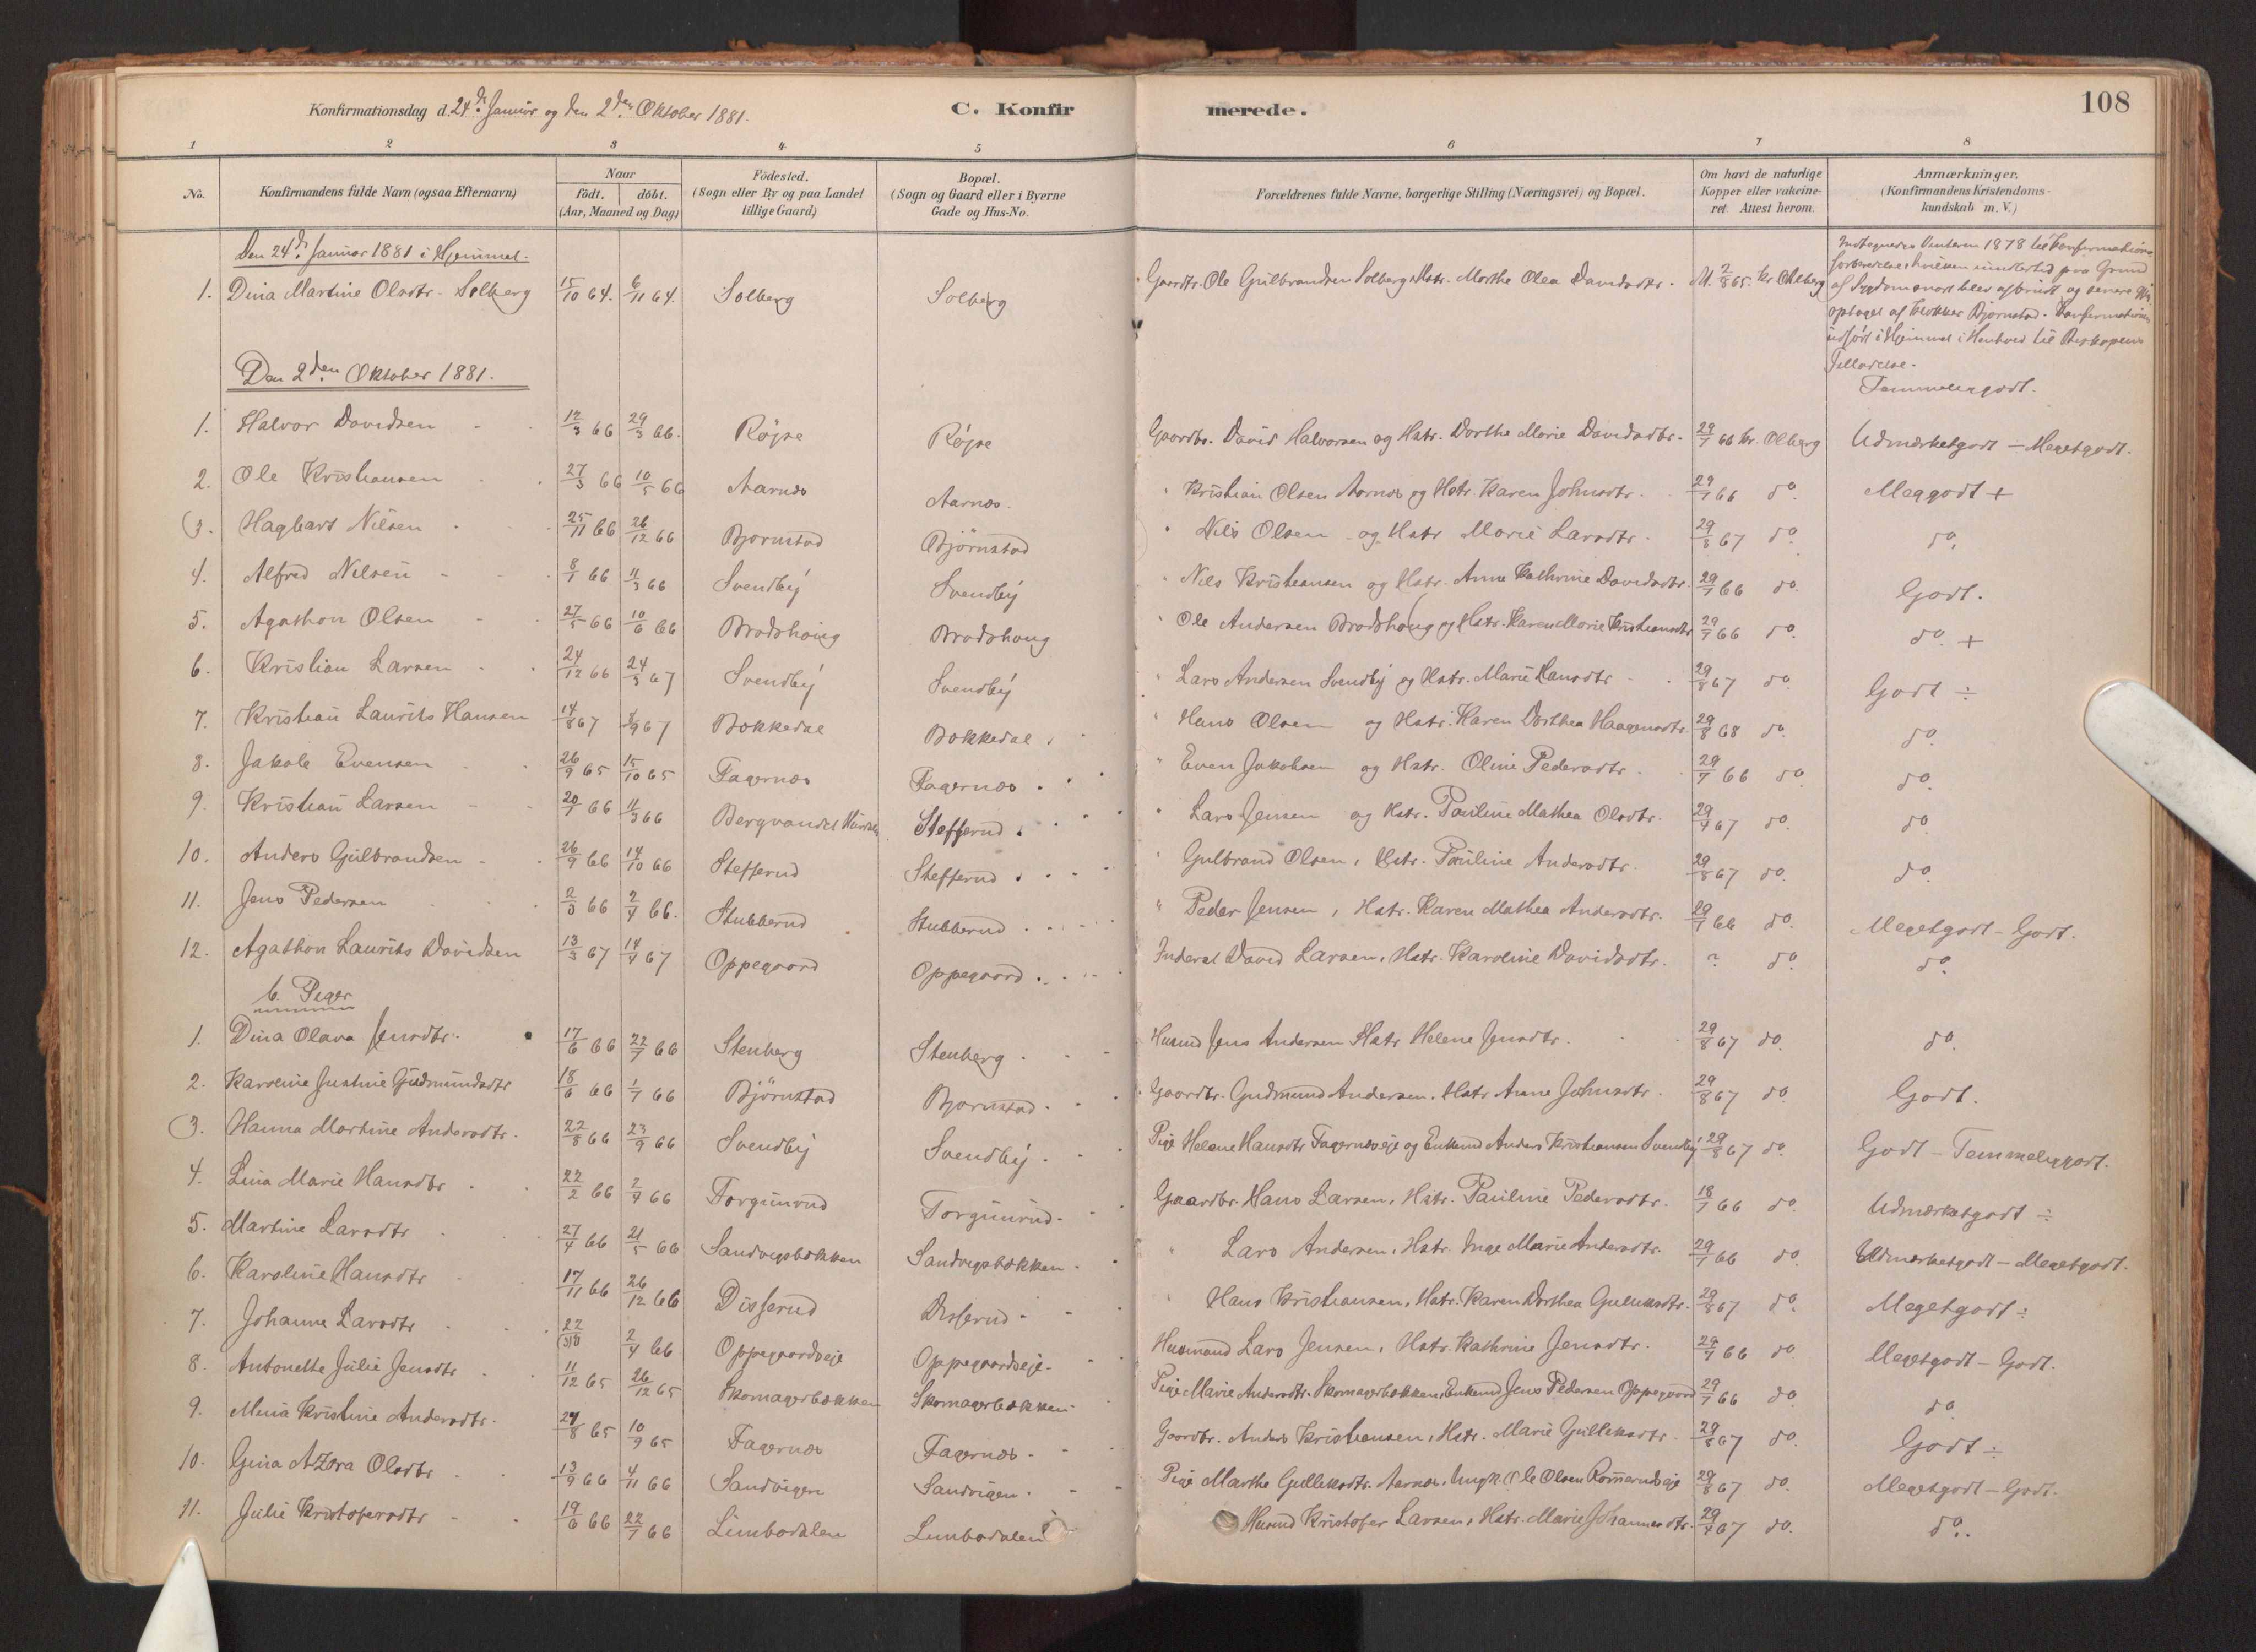 Konfirmationsdag d. 24de Januar og den 2den Oktober 1881.
C. Konfir merede.
108
1 2 3 4 5 6 7 8
No.
Konfirmandens fulde Navn (ogsaa Efternavn)
Naar
födt. döbt.
(Aar, Maaned og Dag)
Födested.
(Sogn eller By og paa Landet
tillige Gaard)
Bopæl.
(Sogn og Gaard eller i Byerne
Gade og Hus-No.
Forældrenes fulde Navne, borgerlige Stilling (Næringsvei) og Bopæl.
Om havt de naturlige
Kopper eller vakcine-
ret. Attest herom.
Anmærkninger.
(Konfirmandens Kristendoms-
kundskab m. V.)
Den 24de Januar 1881 i Hjemmet.
1. Dina Martine Olsdtr. Solberg 15/10 64. 6/11 64. Solberg Solberg Gaardbr. Ole Gulbrandsen Solberg Hstr. Marthe Olea Davidsdtr. 2/8 65. Kr Olberg
Vinteren 1878 til Konfirmations
forberedelse, hvilken imidlertid paa Grund
af Sygdom snart blev afbrudt og senere
optaget af Kirkes. Bjørnstad. Konfirmationen
udført i Hjemmet i Henhold til Biskopens
Tilladelse.
Temmeliggodt.
Den 2den Oktober 1881.
1. Halvor Davidsen 12/3 66 29/3 66. Røjse Røjse Gaardbr. David Halvorsen og Hstr. Dorthe Marie Davidsdtr. 29/7 66 Kr. Olberg Udmærketgodt - Megetgodt.
2. Ole Kristiansen 27/3 66 10/5 66 Aarnæs Aarnæs. " Kristian Olsen Aarnæs og Hstr. Karen Johnsdtr. 29/7 66 do. Meggodt +
3. Hagbart Nilsen 25/11 66 26/12 66 Bjørnstad Bjørnstad " Nils Olsen og Hstr Marie Larsdtr. 29/8 67 do. do.
4. Alfred Nilsen 8/1 66 11/3 66 Svendby Svendby " Nils Kristiansen og Hstr. Anne Kathrine Davidsdtr. 29/7 66 do. Godt.
5. Agathon Olsen 27/5 66 10/6 66 Brodshaug Brodshaug " Ole Andersen Brodshaug og Hstr. Karen Marie Kristiansdtr 29/7 66 do. do. +
6. Kristian Larsen 24/12 66 24/3 67 Svendby Svendby " Lars Andersen Svendby og Hstr. Marie Hansdtr 29/8 67 do. Godt ÷
7. Kristian Laurits Hansen 14/8 67 8/9 67 Bokkedal Bokkedal " Hans Olsen og Hstr. Karen Dorthea Haagensdtr 29/8 68 do. do.
8. Jakob Evensen 26/9 65 15/10 65 Fagernæs Fagernæs " Even Jakobsen og Hstr. Oline Pedersdtr 29/7 66 do. do.
9. Kristian Larsen 20/1 66 11/3 66 Bergvandet Hurdalen Stefferud " Lars Jensen og Hstr. Pauline Mathea Olsdtr. 29/4 67 do. do.
10. Anders Gulbrandsen 26/9 66 14/10 66 Stefferud Stefferud " Gulbrand Olsen, Hstr. Pauline Andersdtr. 29/8 67 do. do.
11. Jens Pedersen 2/3 66 2/4 66. Stubberud Stubberud " Peder Jensen, Hstr. Karen Mathea Andersdtr. 29/7 66 do. Megetgodt - Godt.
12. Agathon Laurits Davidsen 13/3 67 14/4 67 Oppegaard Oppegaard Inderst David Larsen, Hstr. Karoline Davidsdtr. ? do. do.
b. Piger
1. Dina Olava Jensdtr. 17/6 66 22/7 66 Stenberg Stenberg Husmd Jens Andersen Hstr Helene Jensdtr. 29/8 67 do. do.
2. Karoline Justine Gudmundsdtr 18/6 66 1/7 66 Bjørnstad Bjørnstad Gaardbr. Gudmund Andersen, Hstr Anne Johnsdtr. 29/8 67 do. Godt.
3. Hanna Martine Andersdtr. 22/8 66 23/9 66 Svendby Svendby Pige Helene Hansdtr Fagernæseje og Enkemd Anders Kristiansen Svendby 29/8 67 do. Godt - Temmeliggodt.
4. Lina Marie Hansdtr 22/2 66 2/4 66 Torgunrud Torgunrud Gaardbr. Hans Larsen, Hstr. Pauline Pedersdtr. 18/7 66 do. Udmærketgodt ÷
5. Martine Larsdtr 27/4 66 21/5 66 Sandvigsbækken Sandvigsbækken " Lars Andersen, Hstr. Inge Marie Andersdtr. 29/7 66 do. Udmærketgodt - Megetgodt.
6. Karoline Hansdtr 17/11 66 26/12 66 Disserud Disserud " Hans Kristiansen, Hstr. Karen Dorthea Gulliksdtr. 29/8 67 do. Megetgodt ÷
7. Johanne Larsdtr 22/ 2/4 66 Oppegaardseje Oppegaardseje Husmand Lars Jensen, Hstr. Kathrine Jensdtr. 29/7 66 do. Megetgodt - Godt.
8. Antonette Julie Jensdtr 11/12 65 26/12 65 Skomagerbækken Skomagerbækken Pige Marie Andersdtr. Skomagerbækken, Enkemd Jens Pedersen Oppegaard 29/7 66 do. do
9. Mina Kristine Andersdtr. 24/8 65 10/9 65 Fagernæs Fagernæs Gaardbr. Anders Kristiansen, Hstr. Marie Gulliksdtr 29/8 67 do. Godt ÷
10. Gina Azora Olsdtr 13/9 66 4/11 66 Sandvigen Sandvigen Pige Marthe Gulliksdtr. Aarnæs, Ungk. Ole Olsen Romerudseje 29/8 67 do. Megetgodt - Godt.
11. Julie Kristofersdtr 19/6 66 22/7 66 Limbodalen Limbodalen Husmd Kristofer Larsen, Hstr. Marie Johannesdtr. 29/4 67 do. do.